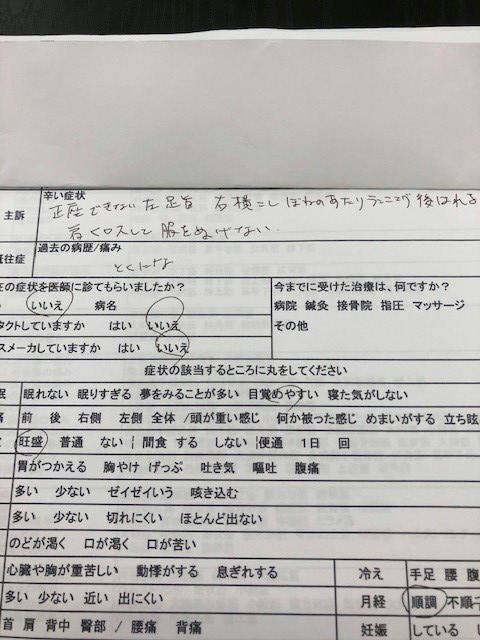 辛い症状
主訴
正座できない 左足首 右横こし ほねのあたり ランニング後はれる
肩 クロスして 服をぬげない
往症
過去の病歴/痛み
とくになし
在の症状を医師に診てもらいましたか?
いいえ 病名
今までに受けた治療は、何ですか?
病院 鍼灸 接骨院 指圧 マッサージ
その他
タクトしていますか はい いいえ
スメーカしていますか はい いいえ
症状の該当するところに丸をしてください
眠 眠れない 眠りすぎる 夢をみることが多い 目覚めやすい 寝た気がしない
痛 前 後 右側 左側 全体 /頭が重い感じ 何か被った感じ めまいがする 立ち眩
旺盛 普通 ない ¦ 間食 する しない ¦便通 1日 回
胃がつかえる 胸やけ げっぷ 吐き気 嘔吐 腹痛
多い 少ない ゼイゼイいう 咳き込む
多い 少ない 切れにくい ほとんど出ない
のどが渇く 口が渇く 口が苦い
心臓や胸が重苦しい 動悸がする 息ぎれする 冷え 手足 腰 腹
多い 少ない 近い 出にくい 月経 順調 不順
首 肩 背中 臀部 / 腰痛 背痛 妊娠 している